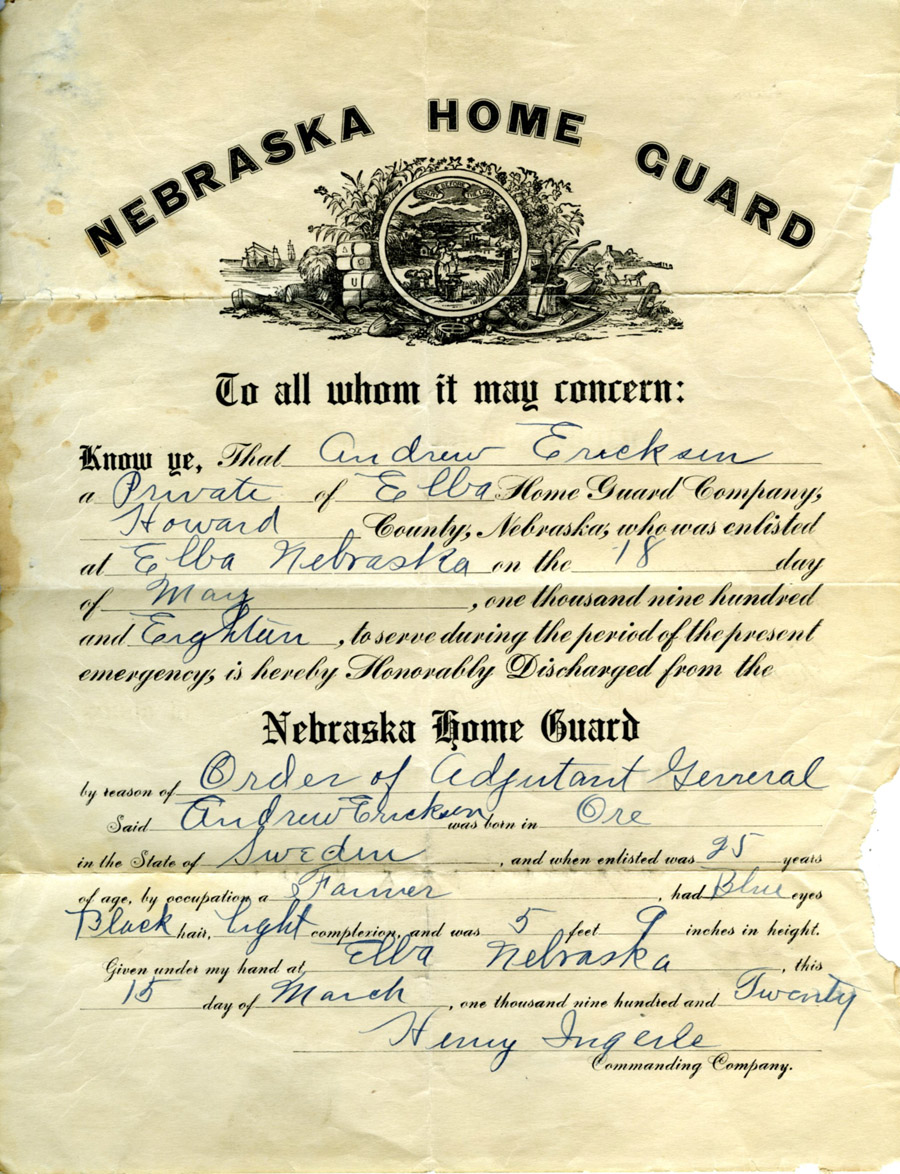 NEBRASKA HOME GUARD
To all whom it may concern:
Know ye, That Andrew Erickson
a Private of Elba Home Guard Company,
Howard County, Nebraska, who was enlisted
at Elba Nebraska on the 18 day
of May, one thousand nine hundred
and Eighteen, to serve during the period of the present
emergency, is hereby Honorably Discharged from the
Nebraska Home Guard
by reason of Order of Adjutant General
Said Andrew Erickson was born in Ore
in the State of Sweden, and when enlisted was 25 years
of age, by occupation a Farmer, had Blue eyes
Black hair, light complexion, and was 5 feet 9 inches in height.
Given under my hand at Elba Nebraska, this
15 day of March, one thousand nine hundred and Twenty
Henry Ingerle
Commanding Company.